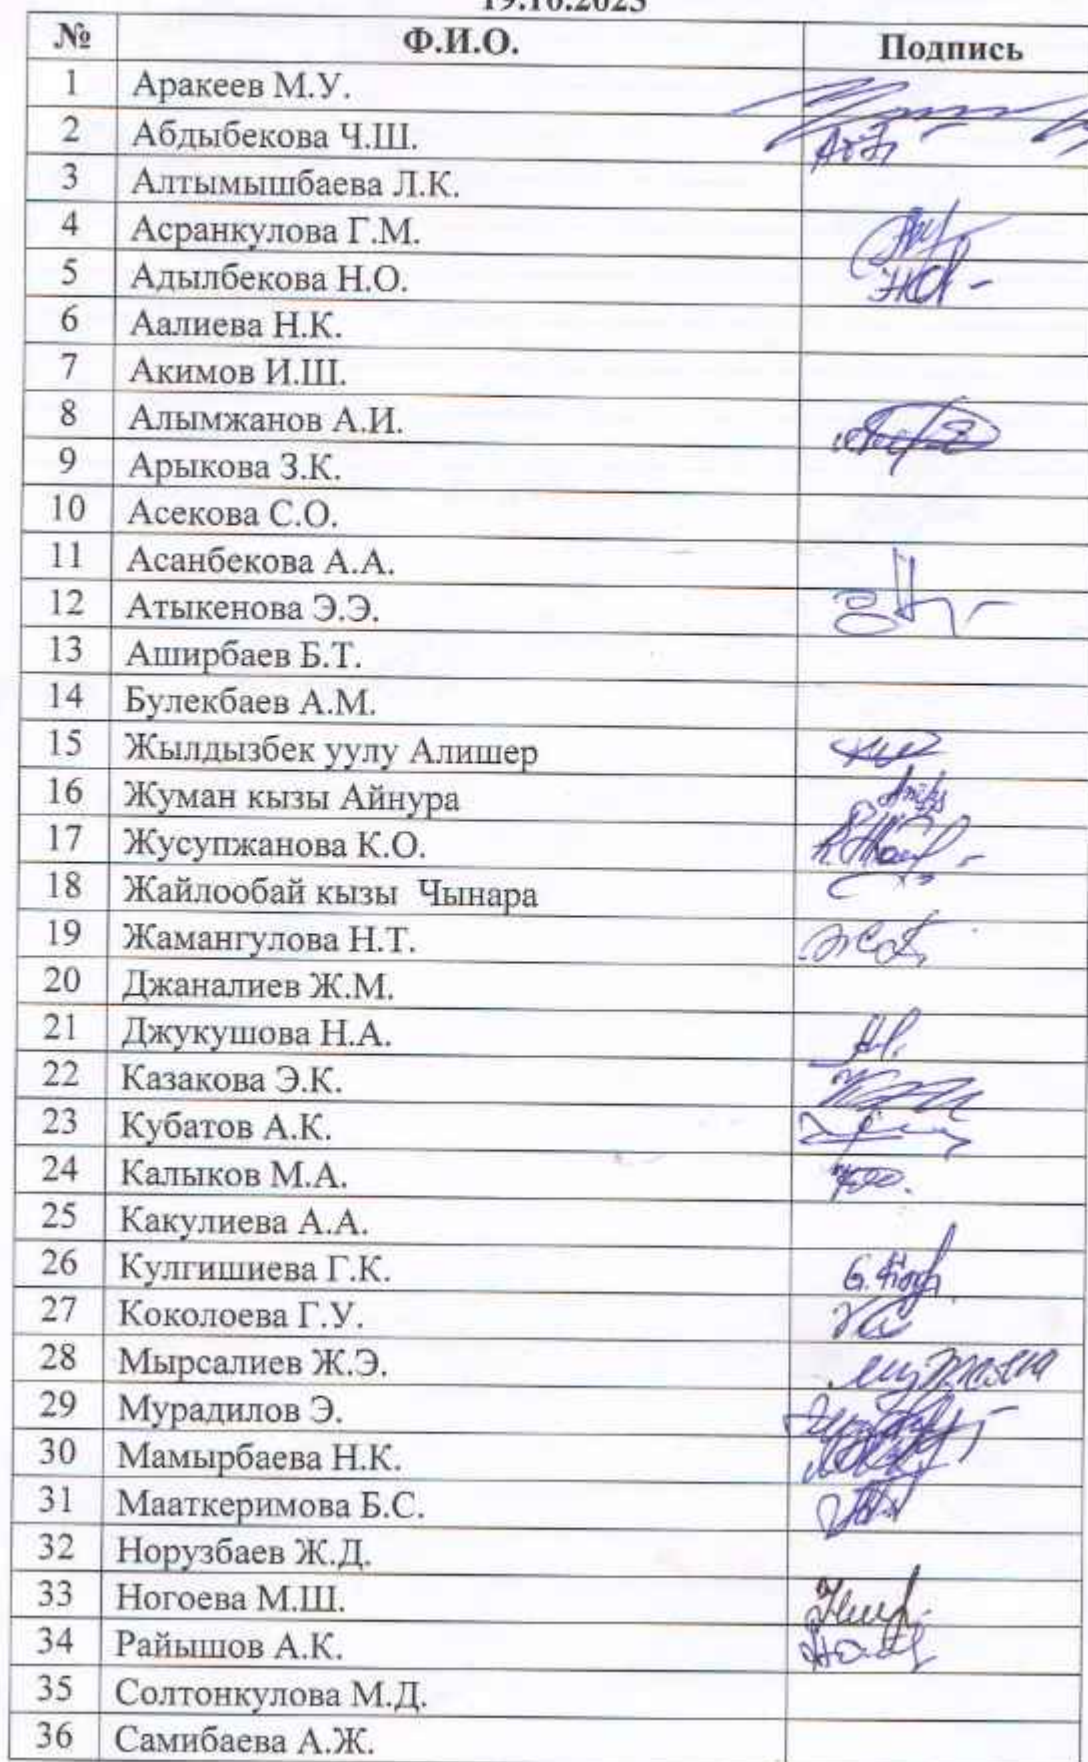 19.10.2023
№ Ф.И.О. Подпись
1 Аракеев М.У.
2 Абдыбекова Ч.Ш.
3 Алтымышбаева Л.К.
4 Асранкулова Г.М.
5 Адылбекова Н.О.
6 Аалиева Н.К.
7 Акимов И.Ш.
8 Алымжанов А.И.
9 Арыкова З.К.
10 Асекова С.О.
11 Асанбекова А.А.
12 Атыкенова Э.Э.
13 Аширбаев Б.Т.
14 Булекбаев А.М.
15 Жылдызбек уулу Алишер
16 Жуман кызы Айнура
17 Жусупжанова К.О.
18 Жайлообай кызы Чынара
19 Жамангулова Н.Т.
20 Джаналиев Ж.М.
21 Джукушова Н.А.
22 Казакова Э.К.
23 Кубатов А.К.
24 Калыков М.А.
25 Какулиева А.А.
26 Кулгишиева Г.К.
27 Коколоева Г.У.
28 Мырсалиев Ж.Э.
29 Мурадилов Э.
30 Мамырбаева Н.К.
31 Мааткеримова Б.С.
32 Норузбаев Ж.Д.
33 Ногоева М.Ш.
34 Райышов А.К.
35 Солтонкулова М.Д.
36 Самибаева А.Ж.